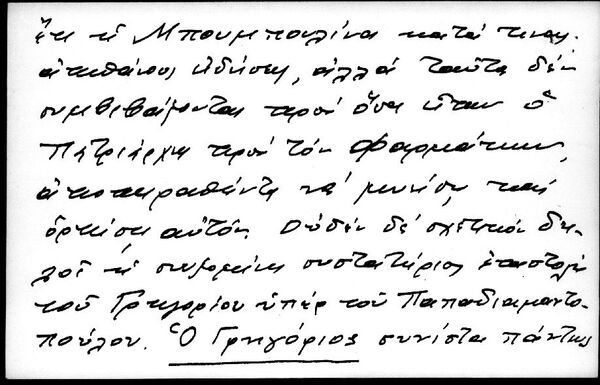 ἔτι ἡ Μπουμπουλίνα κατά τινας
ἀπιθάνους εἰδήσεις, ἀλλά ταῦτα δέν
συμβιβάζονται πρός ὅσα εἶπεν ὁ
Πατριάρχης πρός τόν Φαρμάκην,
νά μυήσῃ καί
ὁρκίσῃ αὐτόν. Οὐδέν δέ σχετικόν δη-
λοῖ ἡ σωζομένη συστατήριος ἐπιστολή
τοῦ Γρηγορίου ὑπέρ τοῦ Παπαδιαμαντο-
πούλου. Ὁ Γρηγόριος συνίστα πάντως